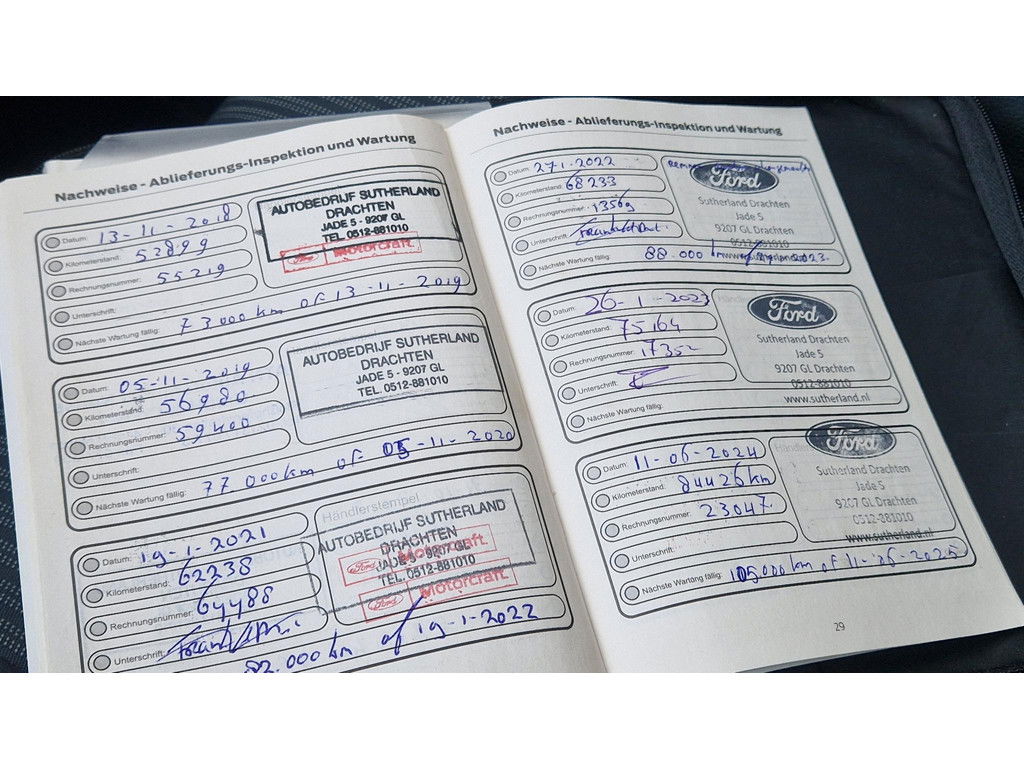 Nachweise - Ablieferungs-Inspektion und Wartung
Datum: 13-11-2018
Kilometerstand: 52899
Rechnungsnummer: 55219
Unterschrift:
Nächste Wartung fällig: 73000 km of 13-11-2019
AUTOBEDRIJF SUTHERLAND
DRACHTEN
JADE 5 - 9207 GL
TEL. 0512-881010
Ford Motorcraft
Datum: 05-11-2019
Kilometerstand: 56980
Rechnungsnummer: 59400
Unterschrift:
Nächste Wartung fällig: 77.000 km of 05-11-2020
AUTOBEDRIJF SUTHERLAND
DRACHTEN
JADE 5 - 9207 GL
TEL. 0512-881010
Datum: 19-1-2021
Kilometerstand: 62238
Rechnungsnummer: 64488
Unterschrift:
82.000 km of 19-1-2022
Händlerstempel
AUTOBEDRIJF SUTHERLAND
DRACHTEN
JADE 5 - 9207 GL
TEL. 0512-881010
Ford Motorcraft.
Ford Motorcraft.
Nachweise - Ablieferungs-Inspektion und Wartung
Datum: 27-1-2022
Kilometerstand: 68233
Rechnungsnummer: 13569
Unterschrift:
Nächste Wartung fällig: 88.000 km of 2023.
Ford
Sutherland Drachten
Jade 5
9207 GL Drachten
0512-881010
www.sutherland.nl
Datum: 26-1-2023
Kilometerstand: 75164
Rechnungsnummer: 17352
Unterschrift:
Nächste Wartung fällig:
Ford
Sutherland Drachten
Jade 5
9207 GL Drachten
0512-881010
www.sutherland.nl
Datum: 11-06-2024
Kilometerstand: 84426 km
Rechnungsnummer: 23047
Unterschrift:
Nächste Wartung fällig: 105000 km of 11-06-2025
Ford
Sutherland Drachten
Jade 5
9207 GL Drachten
0512-881010
www.sutherland.nl
29